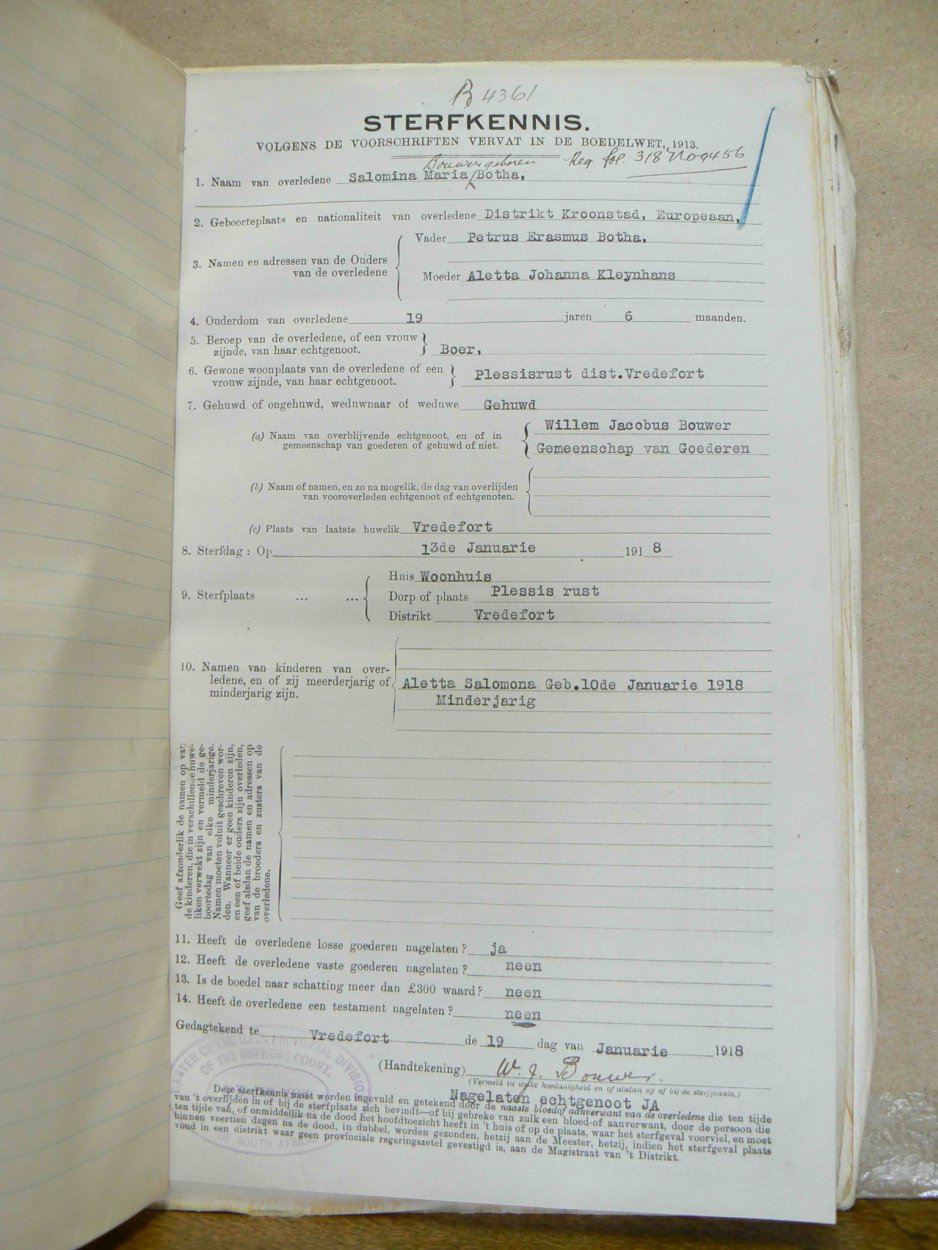 B 4361
STERFKENNIS.
VOLGENS DE VOORSCHRIFTEN VERVAT IN DE BOEDELWET, 1913.
Bouwer geboren Reg fol 318 No 9456
1. Naam van overledene Salomina Maria Botha,
2. Geboorteplaats en nationaliteit van overledene Distrikt Kroonstad, Europeaan,
3. Namen en adressen van de Ouders van de overledene
Vader Petrus Erasmus Botha.
Moeder Aletta Johanna Kleynhans
4. Ouderdom van overledene 19 jaren 6 maanden.
5. Beroep van de overledene, of een vrouw
zijnde, van haar echtgenoot. Boer,
6. Gewone woonplaats van de overledene of een
vrouw zijnde, van haar echtgenoot. Plessisrust dist.Vredefort
7. Gehuwd of ongehuwd, weduwnaar of weduwe Gehuwd
(a) Naam van overblijvende echtgenoot, en of in Willem Jacobus Bouwer
gemeenschap van goederen of gehuwd of niet. Gemeenschap van Goederen
(b) Naam of namen, en zo na mogelik, de dag van overlijden
van vooroverleden echtgenoot of echtgenoten.
(c) Plaats van laatste huwelik Vredefort
8. Sterfdag : Op 13de Januarie 191 8
9. Sterfplaats ... ...
Huis Woonhuis
Dorp of plaats Plessis rust
Distrikt Vredefort
10. Namen van kinderen van over-
ledene, en of zij meerderjarig of
minderjarig zijn.
Aletta Salomona Geb.10de Januarie 1918
Minderjarig
Geef afzonderlik de namen op van
de kinderen, die in verschillende huwe-
liken verwekt zijn en vermeld de ge-
boortedag van elke minderjarige.
Namen moeten voluit geschreven wor-
den. Wanneer er geen kinderen zijn,
en een of beide ouders zijn overleden,
geef alsdan de namen en adressen op
van de broeders en zusters van de
overledene.
11. Heeft de overledene losse goederen nagelaten? ja
12. Heeft de overledene vaste goederen nagelaten? neen
13. Is de boedel naar schatting meer dan £300 waard? neen
14. Heeft de overledene een testament nagelaten? neen
Gedagtekend te Vredefort de 19 dag van Januarie 1918
(Handtekening) W. J. Bouwer.
(Vermeld in welke hoedanigheid en of alsdan op of bij de sterfplaats.)
Nagelaten echtgenoot JA
Deze sterfkennis moet worden ingevuld en getekend door de naaste bloedof aanverwant van de overledene die ten tijde
van 't overlijden in of bij de sterfplaats zich bevindt—of bij gebreke van zulk een bloed-of aanverwant, door de persoon die
ten tijde van, of onmiddelik na de dood het hoofdtoezicht heeft in 't huis of op de plaats, waar het sterfgeval voorviel, en moet
binnen veertien dagen na de dood, in dubbel, worden gezonden, hetzij aan de Meester, hetzij, indien het sterfgeval plaats
vond in een distrikt waar geen provinciale regeringszetel gevestigd is, aan de Magistraat van 't Distrikt.
MASTER OF THE O.F.S. PROVINCIAL DIVISION
OF THE SUPREME COURT.
OF SOUTH AFRICA